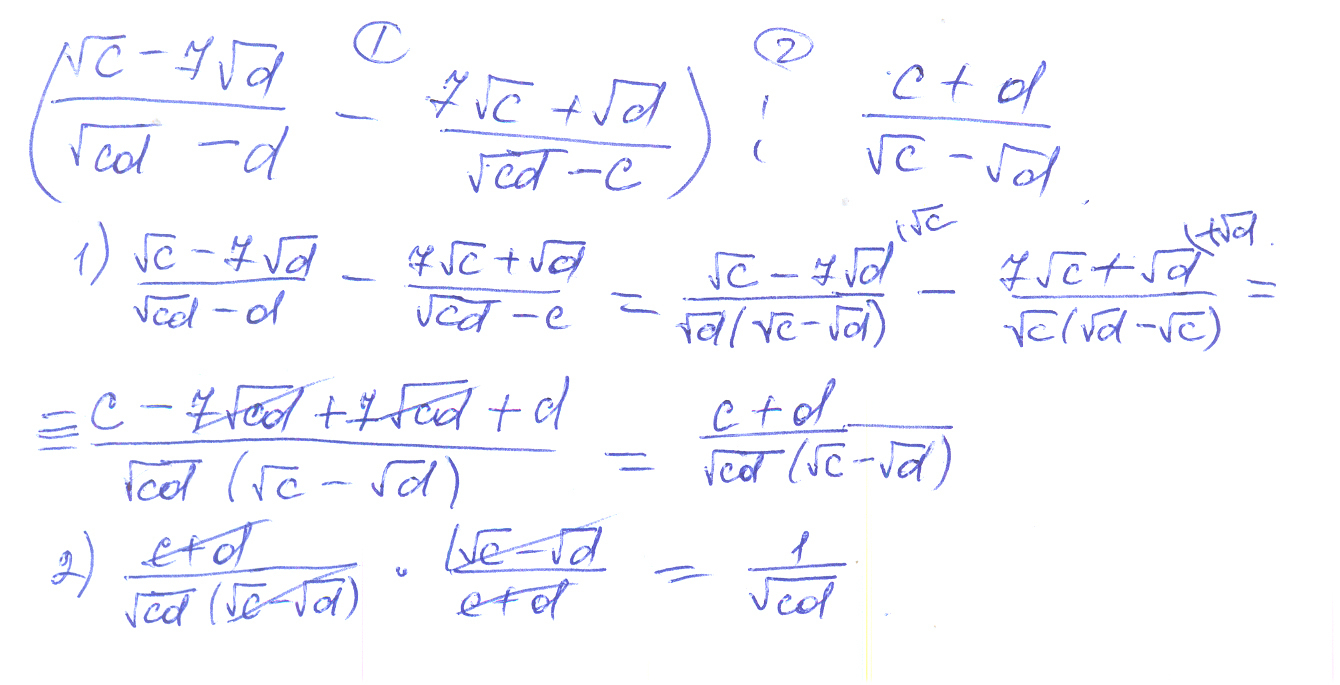 ① ②
((√c − 7√d)/(√cd − d) − (7√c + √d)/(√cd − c)) : (c + d)/(√c − √d)
1) (√c − 7√d)/(√cd − d) − (7√c + √d)/(√cd − c) = (√c − 7√d)/(√d(√c − √d)) ^(√c − (7√c + √d)/(√c(√d − √c)) ^(+√d =
= (c − 7√cd + 7√cd + d)/(√cd (√c − √d)) = (c + d)/(√cd (√c − √d))
2) (c + d)/(√cd (√c − √d)) · (√c − √d)/(c + d) = 1/√cd